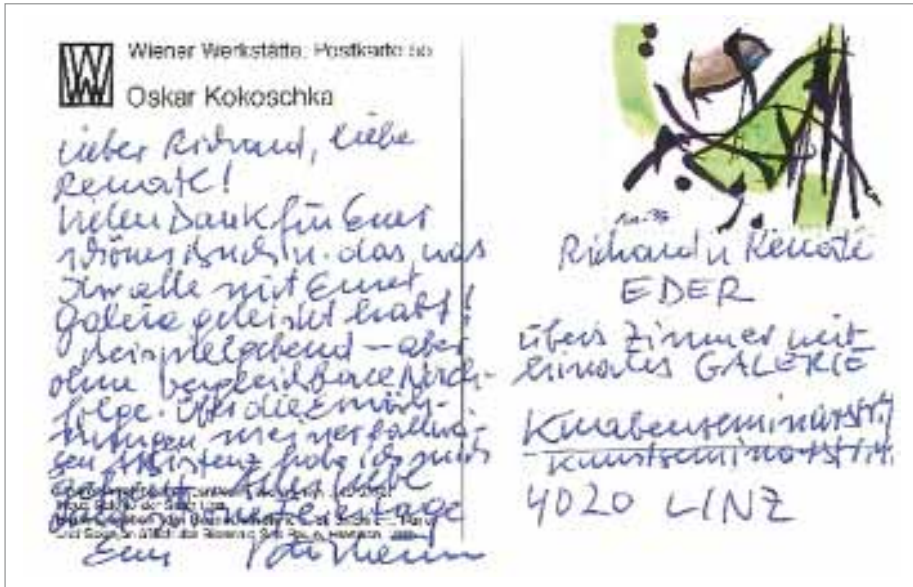 Wiener Werkstätte, Postkarte
Oskar Kokoschka
Lieber Richard, liebe
Renate!
Vielen Dank für Euer
schönes Buch u. das, was
Ihr alle mit Eurer
Galerie geleistet habt!
Beispielgebend – aber
ohne vergleichbare Nach-
folge. Über die Erwäh-
nungen meiner
Assistenz habe ich mich
gefreut. Alles Liebe
Feiertage
Euer
Richard u Renate
EDER
übers Zimmer mit
GALERIE
Knabenseminarstr
Kunstseminarstr
4020 LINZ